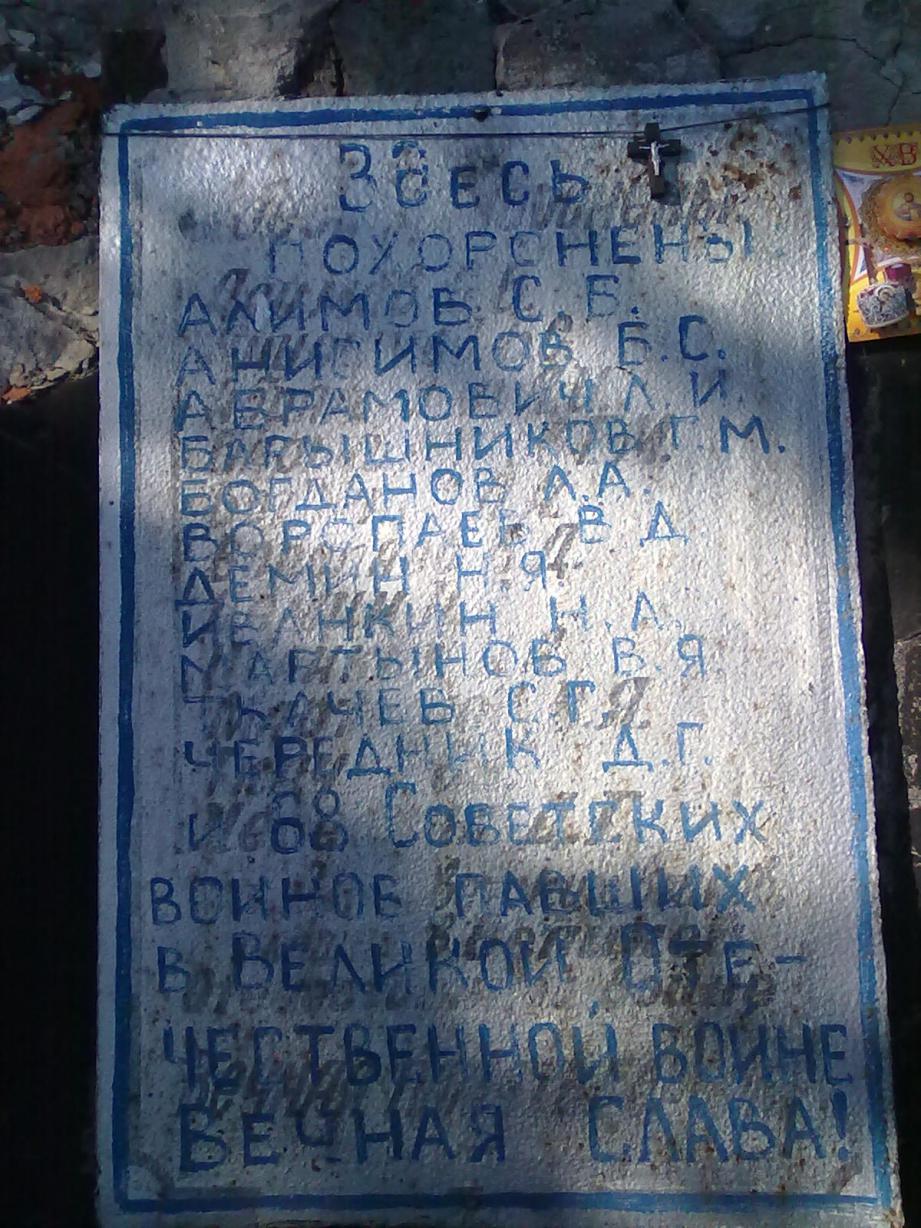 Здесь
похоронены
Акимов С. Б.
Анисимов Б.С.
Абрамович Л.И.
Барышников Г.М.
Богданов Л.А.
Воропаев В Д
Демин Н.Я.
Иванкин Н.А.
Мартынов В.Я
Ткачев С.Г.
Чередник Д.Г.
и 68 Советских
воинов павших
в Великой Оте-
чественной войне
Вечная слава!
ХВ